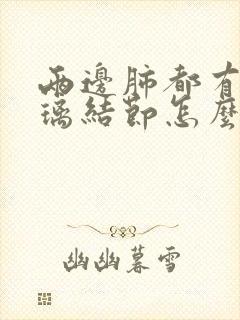 兩邊肺都有
璃結節怎麼
幽幽暮雪